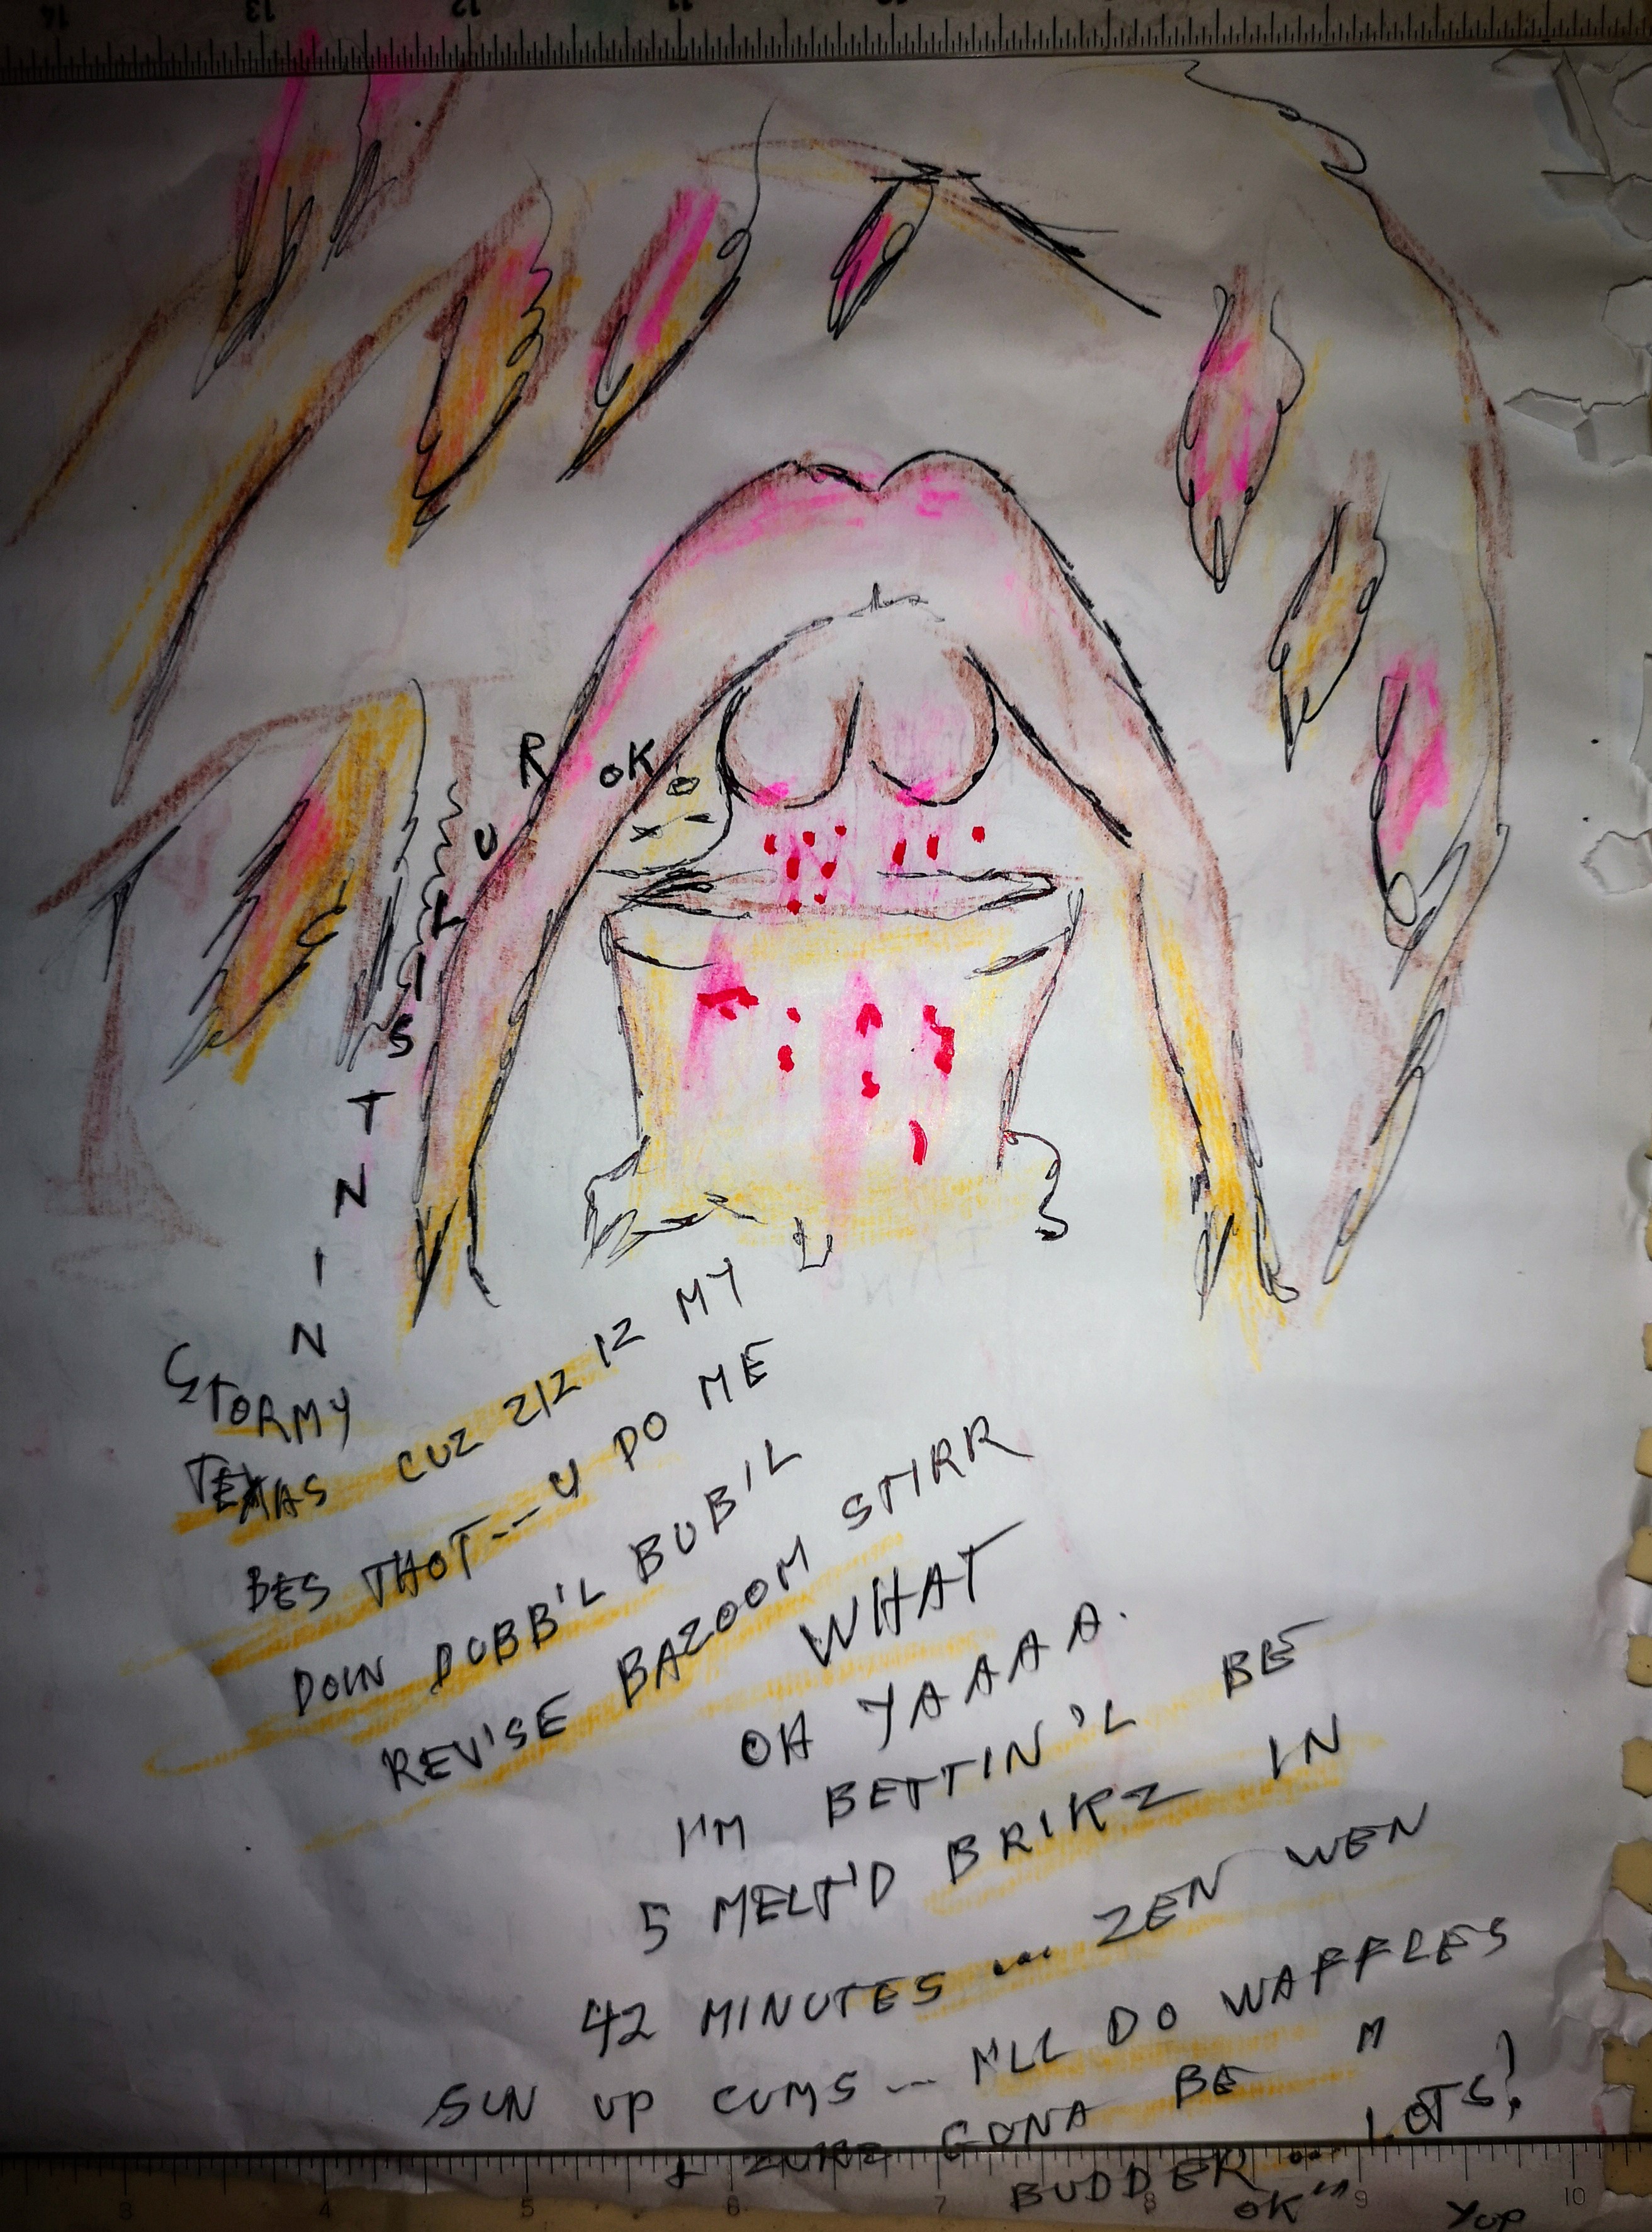 14 13 12 11 10
R U LISTNIN
OK
STORMY
TEXAS CUZ 212 12 MY
BES THOT -- U DO ME
DOIN DUBB'L BUB'L
REV'SE BAZOOM STIRR
WHAT
OH YAAAA.
I'M BETTIN'L BE
5 MELT'D BRIKZ IN
42 MINUTES ... ZEN WEN
SUN UP CUMS -- I'LL DO WAFFLES
GONA BE M
BUDDER ... LOTS!
OK YUP
3 4 5 6 7 8 9 10